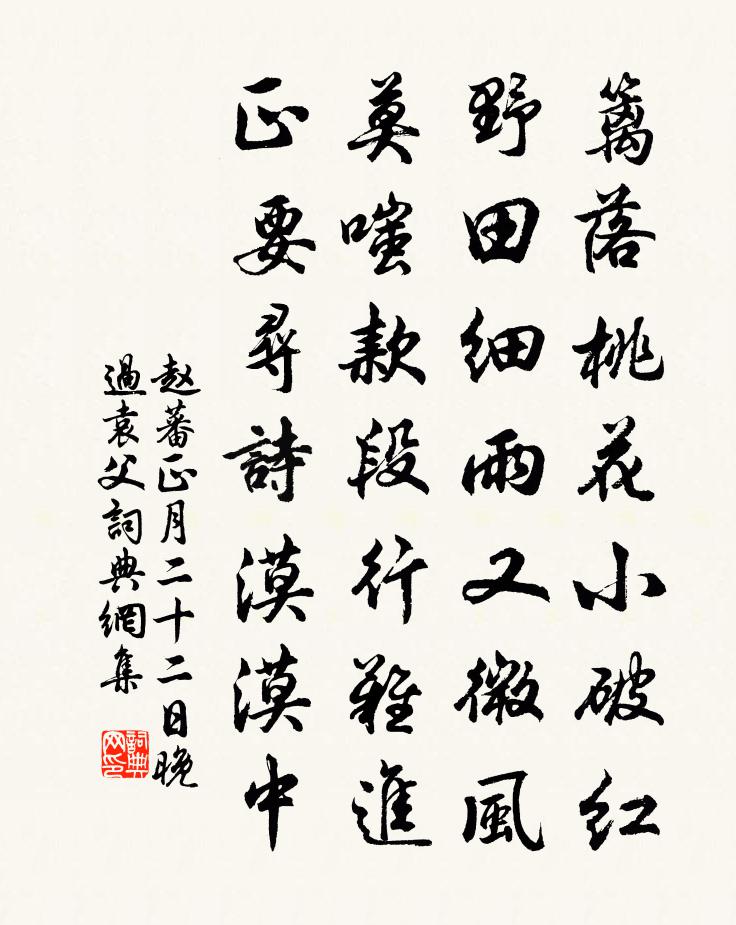 籬落桃花小破紅
野田细雨又微風
莫嗤款段行難進
正要尋詩漠漠中
赵蕃正月二十二日晚
過袁父詞典網集
詞典
网印